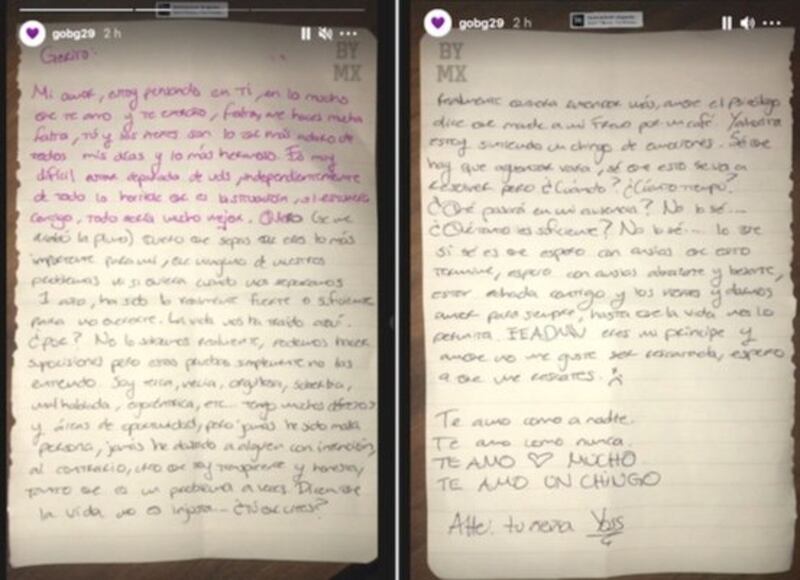 gobg29 2 h
BY
MX
Gerito:
Mi amor, estoy pensando en Ti, en lo mucho
que te amo y te extraño, me haces mucha
falta, tú y los nenes son lo que más adoro de
todos mis días y lo más hermoso. Es muy
difícil estar separada de uds, independientemente
de todo lo horrible que es la situación, si estuviera
contigo, todo sería mucho mejor. (se me
acabó la pluma) quiero que sepas que eres lo más
importante para mi, que ninguno de nuestros
problemas ni si quiera cuando nos separamos
1 año, ha sido lo realmente fuerte o suficiente
para no quererte. La vida nos ha traido aquí.
¿por? No lo sabemos realmente, podemos hacer
suposiciones pero estas pruebas simplemente no las
entiendo. Soy terca, necia, orgullosa, soberbia,
mal hablada, egocéntrica, etc... tengo muchos defectos
y áreas de oportunidad, pero jamás he sido mala
persona, jamás he dañado a alguien con intención,
al contrario, creo que soy transparente y honesta,
tanto que es un problema a veces. Dicen que
la vida no es injusta... ¿Tú que crees?
gobg29 2 h
BY
MX
Realmente quisiera entender más, aunque el psicólogo
dice que mande a mi Freud por un café. Y ahorita
estoy sintiendo un chingo de emociones. Sé que
hay que aguantar vara, sé que esto se va a
resolver pero ¿Cuándo? ¿Cuánto tiempo?
¿Qué pasará en mi ausencia? No lo sé...
¿Qué tanto es suficiente? No lo sé... lo que
si sé es que espero con ansias que esto
termine, espero con ansias abrazarte y besarte,
estar echada contigo y los nenes y darnos
amor para siempre, hasta que la vida nos lo
permita. eres mi príncipe y
aunque no me guste ser rescatada, espero
a que me rescates.
Te amo como a nadie.
Te amo como nunca.
TE AMO ♡ MUCHO
TE AMO UN CHINGO
Atte: tu nena Yoss